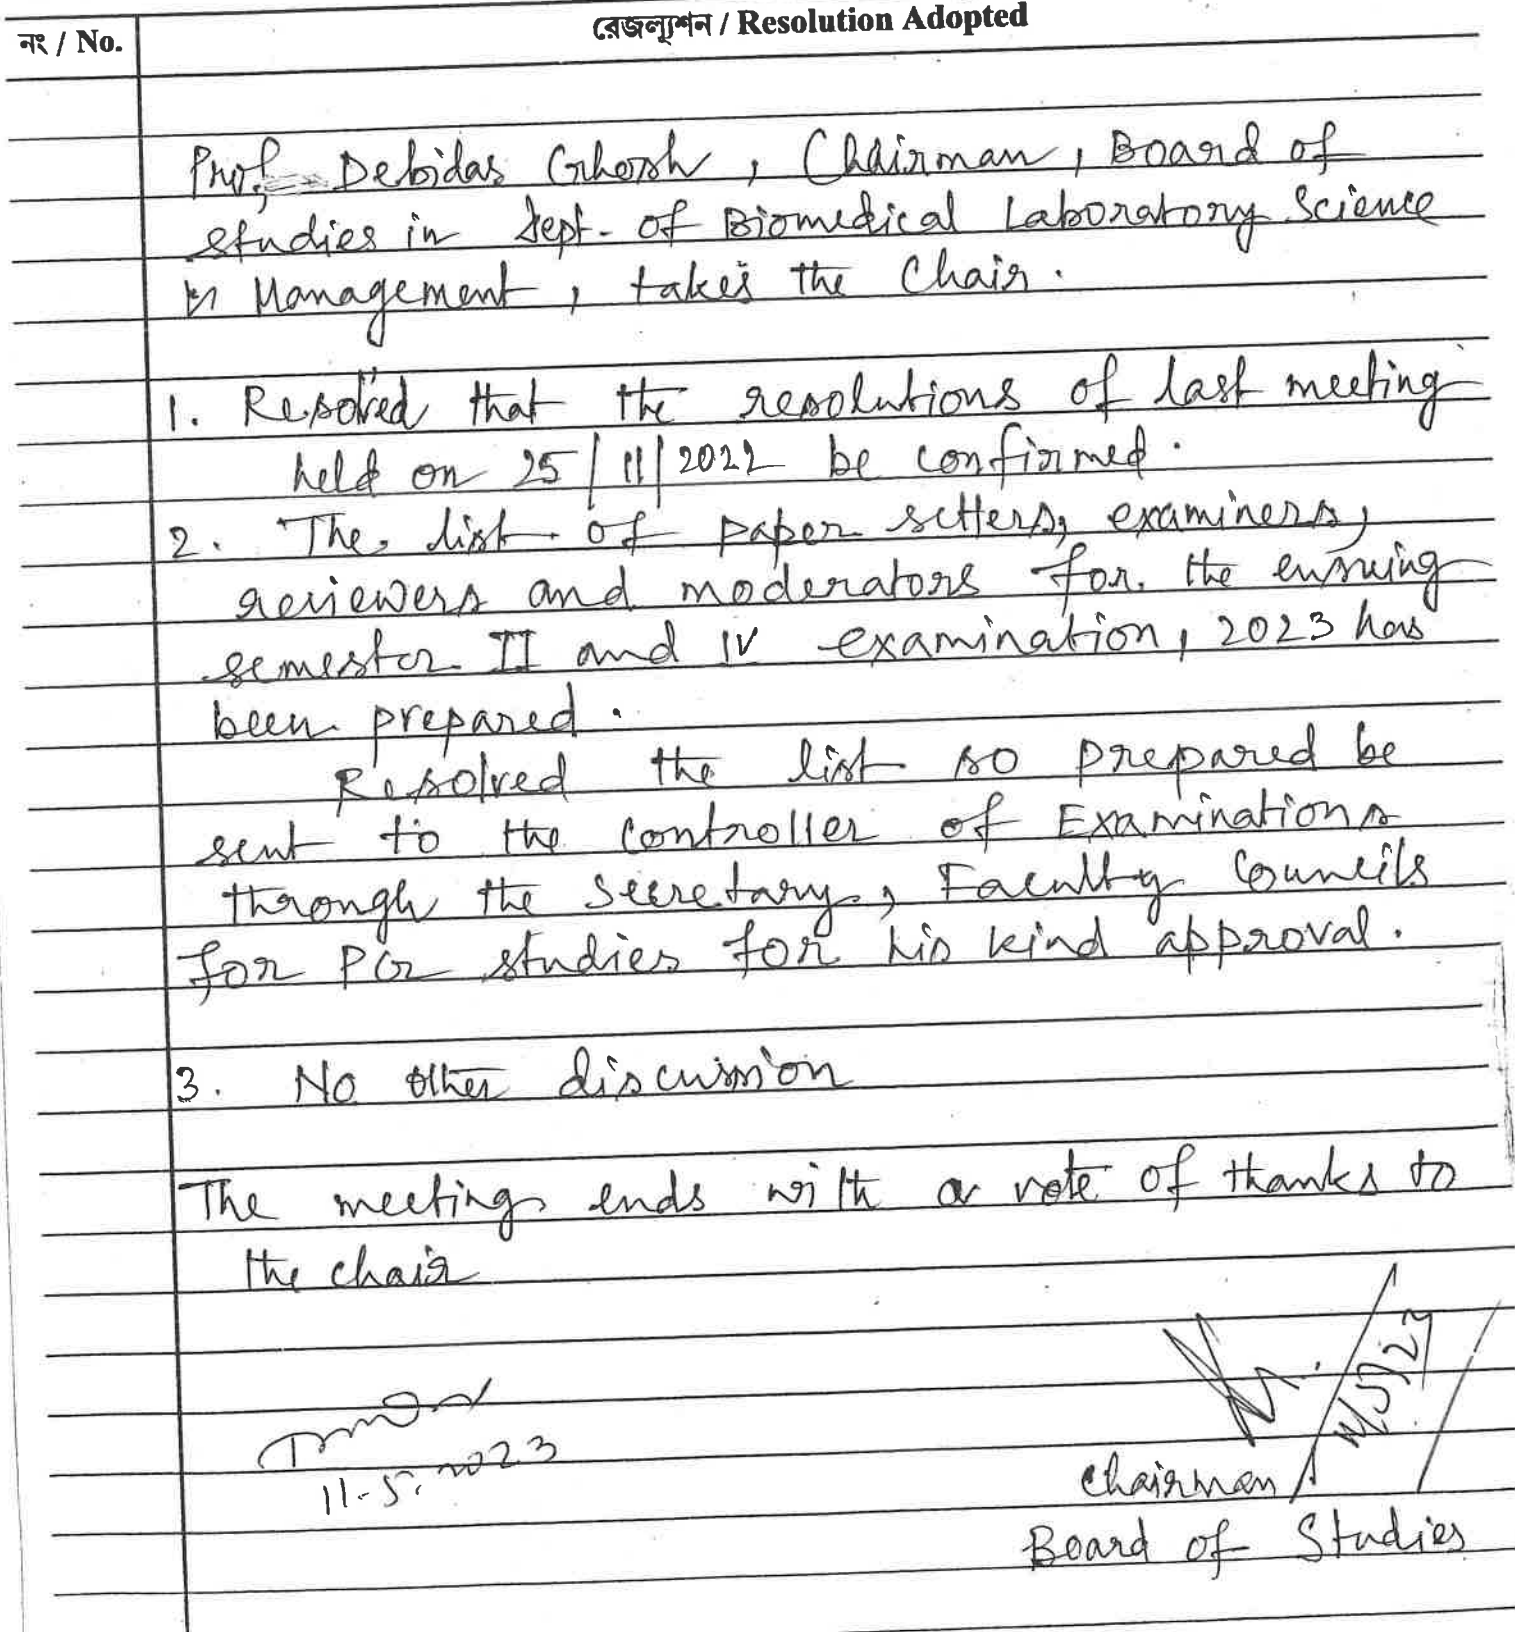 নং / No.
রেজল্যুশন / Resolution Adopted
Prof. Debidas Ghosh, Chairman, Board of
studies in Dept. of Biomedical Laboratory Science
& Management, takes the Chair.
1. Resolved that the resolutions of last meeting
held on 25/11/2022 be confirmed.
2. The list of paper setters, examiners,
reviewers and moderators for the ensuing
semester II and IV examination, 2023 has
been prepared.
Resolved the list so prepared be
sent to the Controller of Examinations
through the Secretary, Faculty Councils
for PG studies for his kind approval.
3. No other discussion
The meeting ends with a vote of thanks to
the chair
11.5.2023
Chairman
Board of Studies